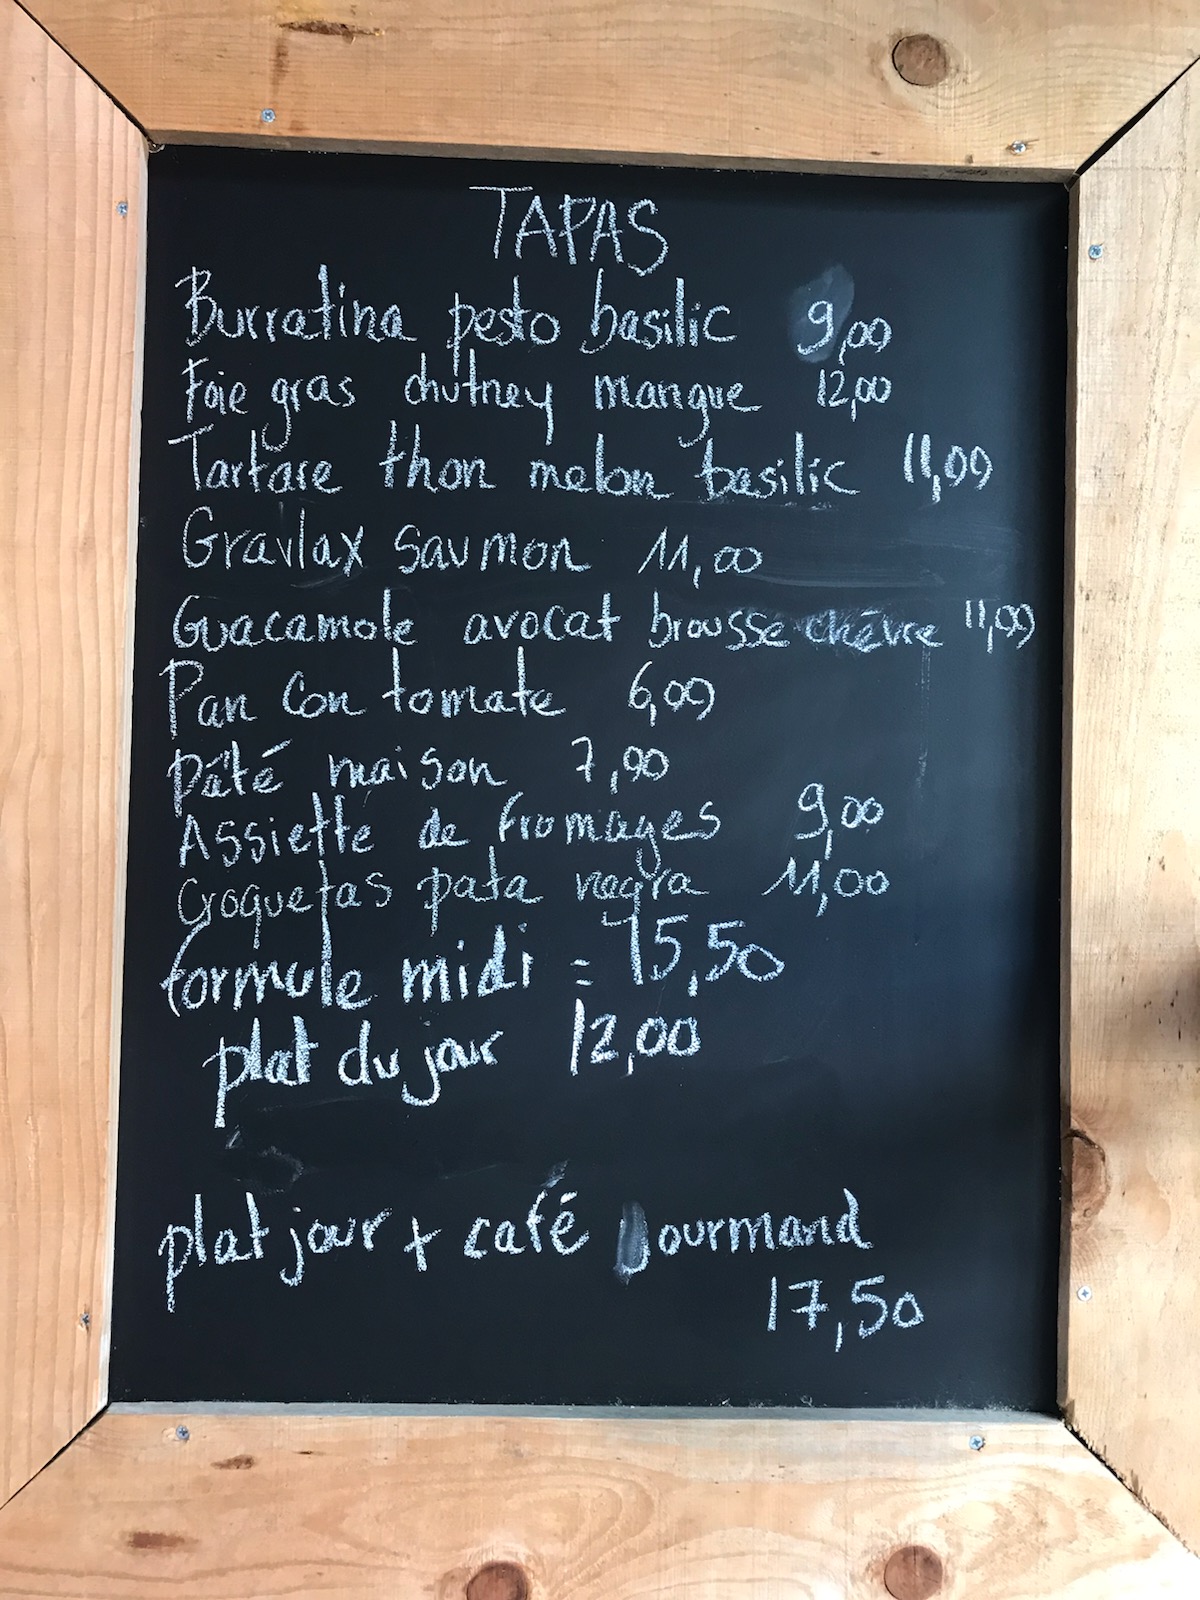 TAPAS
Burratina pesto basilic 9,00
Foie gras chutney mangue 12,00
Tartare thon melon basilic 11,00
Gravlax saumon 11,00
Guacamole avocat brousse chèvre 11,00
Pan Con tomate 6,00
Pâté maison 7,00
Assiette de fromages 9,00
Croquetas pata negra 11,00
formule midi = 15,50
plat du jour 12,00
plat jour + café gourmand
17,50